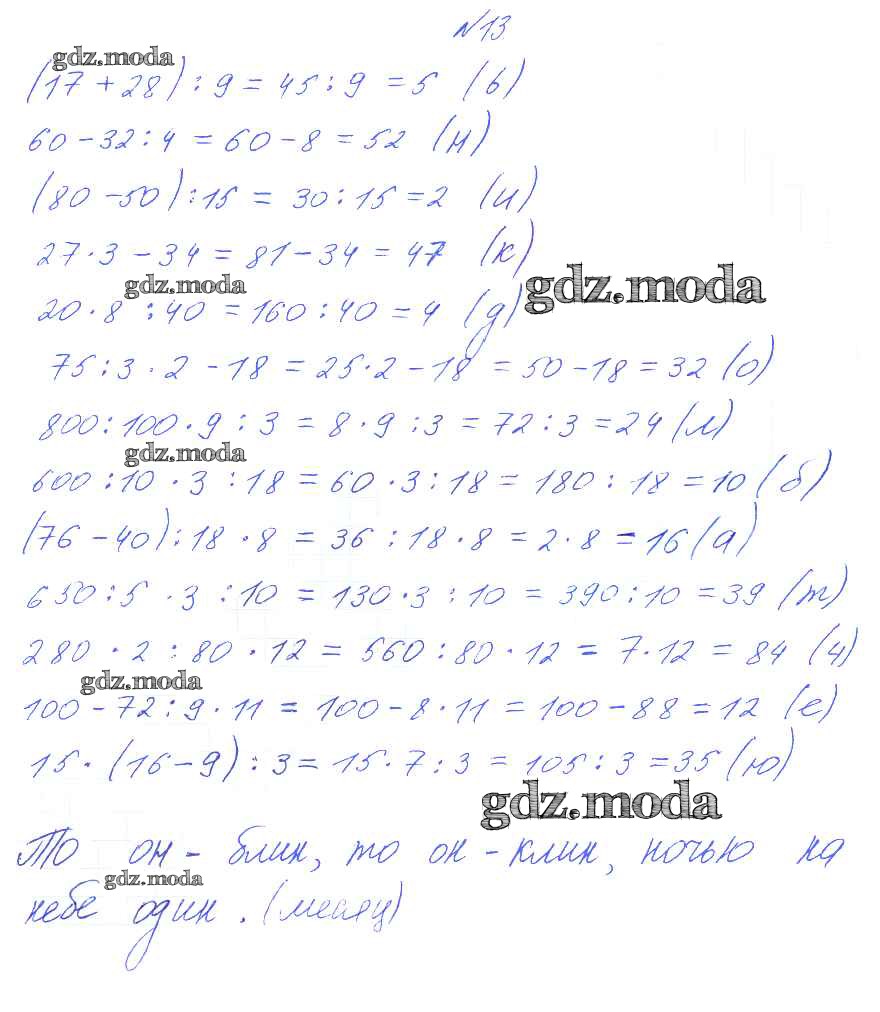 №13
gdz.moda
(17 + 28) : 9 = 45 : 9 = 5 (ь)
60 - 32 : 4 = 60 - 8 = 52 (н)
(80 - 50) : 15 = 30 : 15 = 2 (и)
27 · 3 - 34 = 81 - 34 = 47 (к)
gdz.moda gdz.moda
20 · 8 : 40 = 160 : 40 = 4 (д)
75 : 3 · 2 - 18 = 25 · 2 - 18 = 50 - 18 = 32 (о)
800 : 100 · 9 : 3 = 8 · 9 : 3 = 72 : 3 = 24 (л)
gdz.moda
600 : 10 · 3 : 18 = 60 · 3 : 18 = 180 : 18 = 10 (б)
(76 - 40) : 18 · 8 = 36 : 18 · 8 = 2 · 8 = 16 (а)
650 : 5 · 3 : 10 = 130 · 3 : 10 = 390 : 10 = 39 (т)
280 · 2 : 80 · 12 = 560 : 80 · 12 = 7 · 12 = 84 (ч)
gdz.moda
100 - 72 : 9 · 11 = 100 - 8 · 11 = 100 - 88 = 12 (е)
15 · (16 - 9) : 3 = 15 · 7 : 3 = 105 : 3 = 35 (ю)
gdz.moda
То он - блин, то он - клин, ночью на
gdz.moda
небе один. (месяц)